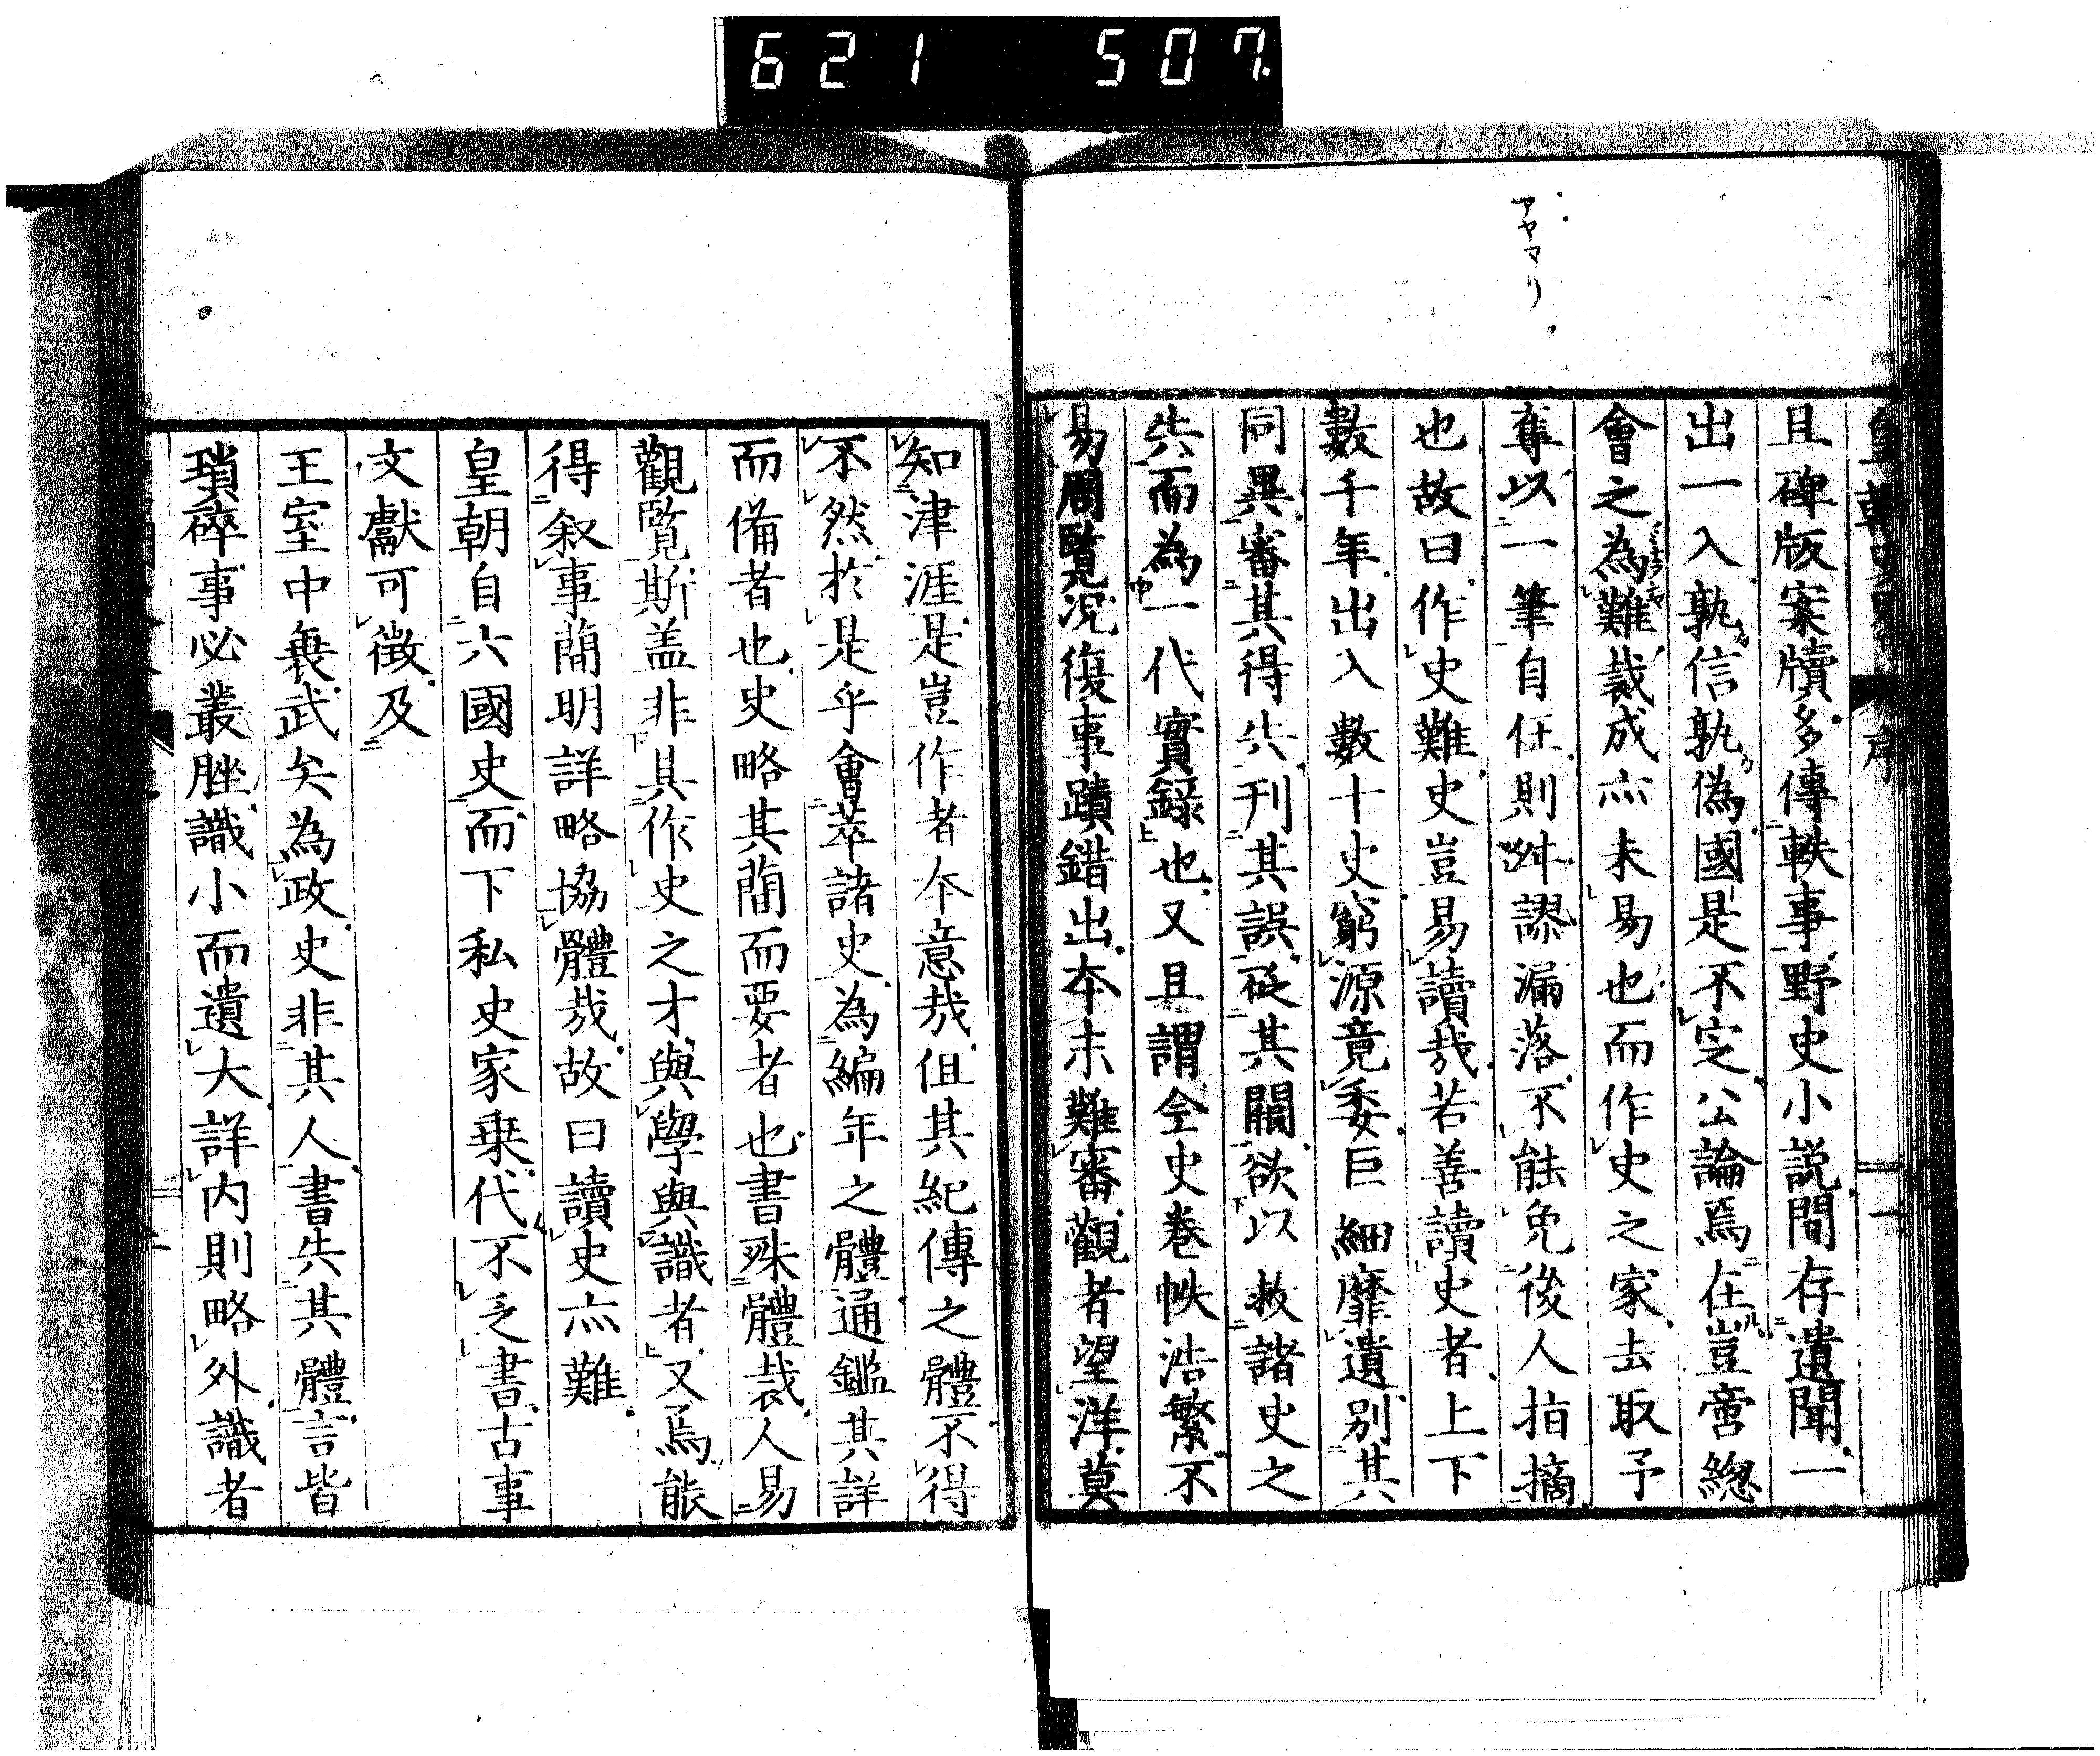 621 507.
アヤマリ
皇朝史略 序 一
且碑版案牘多傳軼事野史小説間存遺聞一
出一入孰信孰偽國是不定公論焉在豈啻總
會之為難裁成亦未易也而作史之家去取予
奪以一筆自任則舛謬漏落不能免後人指摘
也故曰作史難史豈易讀哉若善讀史者上下
數千年出入數十史窮源竟委巨細靡遺別其
同異審其得失刊其誤砭其闕欲以救諸史之
失而為一代實録也又且謂全史巻帙浩繁不
易周覽况復事蹟錯出本末難審觀者望洋莫
知津涯是豈作者本意哉但其紀傳之體不得
不然於是乎會萃諸史為編年之體通鑑其詳
而備者也史略其蕳而要者也書殊體裁人易
觀覽斯盖非具作史之才與學與識者又焉能
得叙事蕳明詳略協體哉故曰讀史亦難
皇朝自六國史而下私史家乗代不乏書古事
文獻可徴及
王室中衰武矢為政史非其人書失其體言皆
瑣碎事必叢脞識小而遺大詳内則略外識者